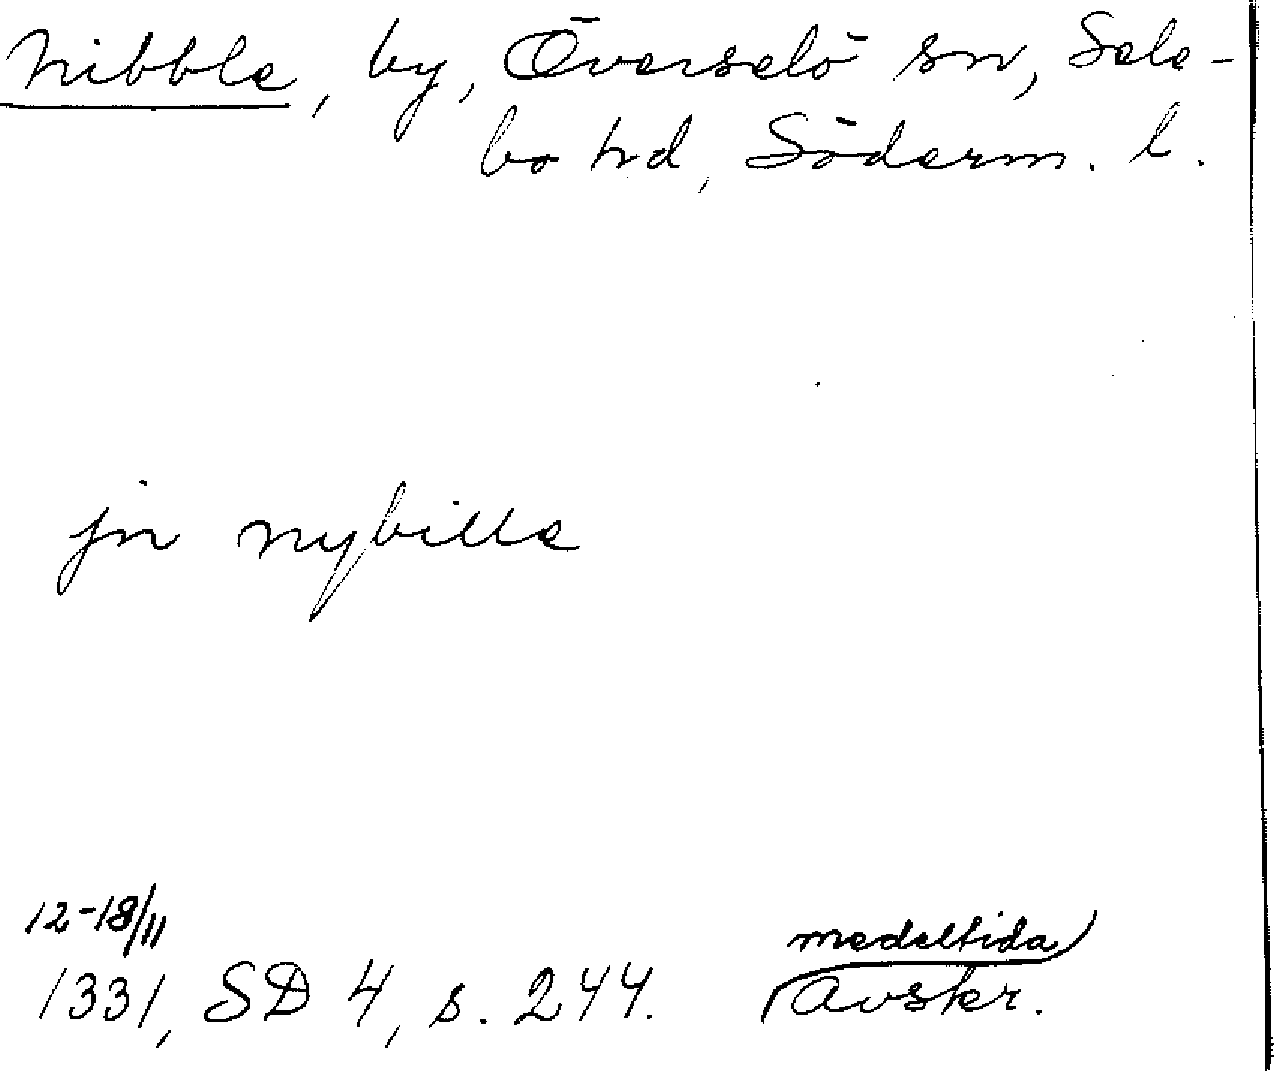 Nibble, by, Överselö sn, Sele-
bo hd, Söderm. l.
jn nybille
12-18/11
1331, SD 4, s. 244.
medeltida
Avskr.